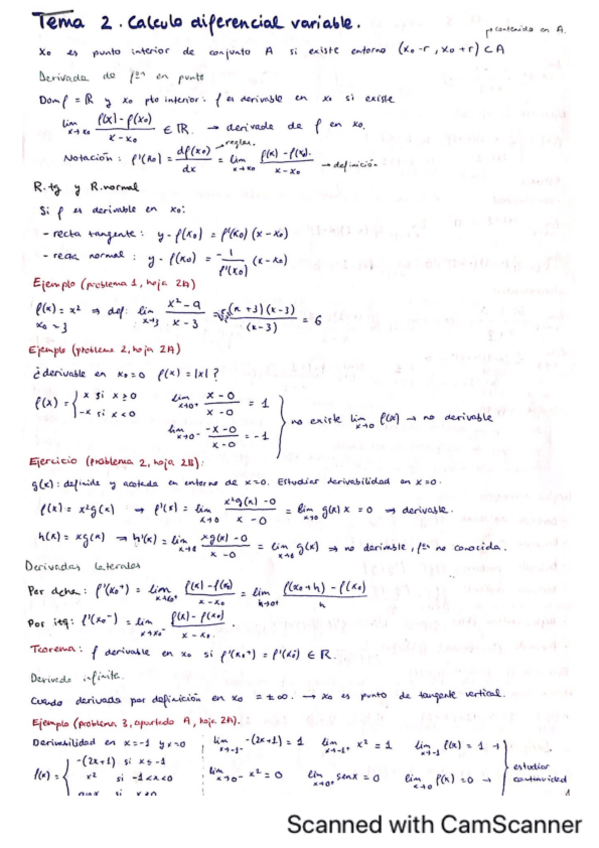 Tema 2. Calculo diferencial variable.
x₀ es punto interior de conjunto A si existe entorno (x₀-r, x₀+r) ⊂ A
→ contenido en A.
Derivada de fᵒⁿ en punto
Dom f = ℝ y x₀ pto interior: f es derivable en x₀ si existe
lim x→x₀ (f(x) - f(x₀))/(x - x₀) ∈ ℝ. → derivada de f en x₀.
Notación: f'(x₀) = df(x₀)/dx → reglas. = lim x→x₀ (f(x) - f(x₀))/(x - x₀) → definición
R.tg y R.normal
Si f es derivable en x₀:
- recta tangente: y - f(x₀) = f'(x₀)(x - x₀)
- recta normal: y - f(x₀) = -1/f'(x₀) (x - x₀)
Ejemplo (problema 1, hoja 2A)
f(x) = x² ⇒ def: lim x→3 (x² - 9)/(x - 3) = ((x+3)(x-3))/(x-3) = 6
x₀ = 3
Ejemplo (problema 2, hoja 2A)
¿derivable en x₀=0 f(x) = |x|?
f(x) = { x si x ≥ 0 lim x→0⁺ (x - 0)/(x - 0) = 1
-x si x < 0 lim x→0⁻ (-x - 0)/(x - 0) = -1
} no existe lim x→0 f(x) → no derivable
Ejercicio (problema 2, hoja 2B):
g(x): definida y acotada en entorno de x=0. Estudiar derivabilidad en x=0.
f(x) = x²g(x) → f'(x) = lim x→0 (x²g(x) - 0)/(x - 0) = lim x→0 g(x) x = 0 → derivable.
h(x) = xg(x) → h'(x) = lim x→0 (xg(x) - 0)/(x - 0) = lim x→0 g(x) → no derivable, fᵒⁿ no conocida.
Derivadas laterales
Por dcha: f'(x₀⁺) = lim x→x₀⁺ (f(x) - f(x₀))/(x - x₀) = lim h→0⁺ (f(x₀+h) - f(x₀))/h
Por izq: f'(x₀⁻) = lim x→x₀⁻ (f(x) - f(x₀))/(x - x₀).
Teorema: f derivable en x₀ si f'(x₀⁺) = f'(x₀⁻) ∈ ℝ.
Derivada infinita.
Cuando derivada por definición en x₀ = ±∞. → x₀ es punto de tangente vertical.
Ejemplo (problema 3, apartado A, hoja 2A).
Derivabilidad en x=-1 y x=0 lim x→-1⁻ -(2x+1) = 1 lim x→-1⁺ x² = 1 lim x→-1 f(x) = 1 →
f(x) = { -(2x+1) si x ≤ -1
x² si -1<x<0 lim x→0⁻ x² = 0 lim x→0⁺ senx = 0 lim x→0 f(x) = 0 →
} estudiar continuidad
si x≥0
1
Scanned with CamScanner